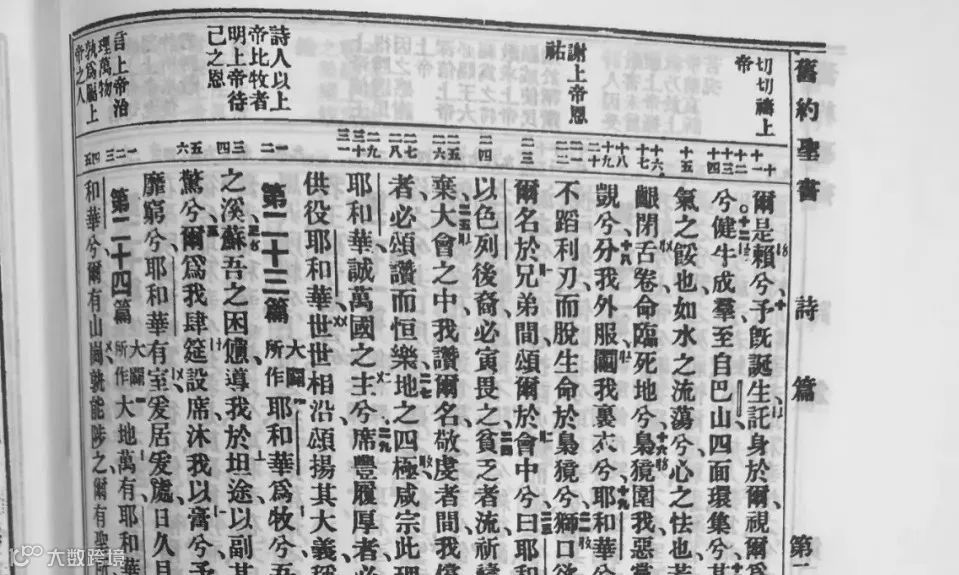 舊約聖書 詩篇 第二
切切禱上
帝
謝上帝恩
祐
詩人以上
帝比牧者
明上帝待
己之恩
言上帝治
理萬物
孰為屬上
帝之人
十
十一
十二
十三
十四
十五
十六
十七
十八
十九
二十
二一
二二
二三
二四
二五
二六
二八
二九
三十
三一
一
二
三
四
五
六
一
二
三
四
五
爾是賴兮予旣誕生託身於爾視爾
兮健牛成羣至自巴山四面環集兮其
氣之餒也如水之流蕩兮心之怯也若
齦閉舌卷命臨死地兮梟獍圍我惡黨
覬兮分我外服鬮我裏衣兮耶和華
不蹈利刃而脫生命於梟獍兮獅口欲
爾名於兄弟間頌爾於會中兮曰耶和
以色列後裔必寅畏之貧乏者流祈禱
棄大會之中我讚爾名敬虔者間我償
者必頌讚而恒樂地之四極咸宗此理
耶和華誠萬國之主兮席豐履厚者必
供役耶和華世世相沿頌揚其大義
第二十三篇 大闢所作 耶和華爲牧兮吾
之溪蘇吾之困憊導我於坦途以副其
驚兮爾爲我肆筵設席沐我以膏兮予
靡窮兮耶和華有室爰居爰處日久月
第二十四篇 大闢所作 大地萬有耶和華
和華兮爾有山崗孰能陟之爾有聖所
大数跨境